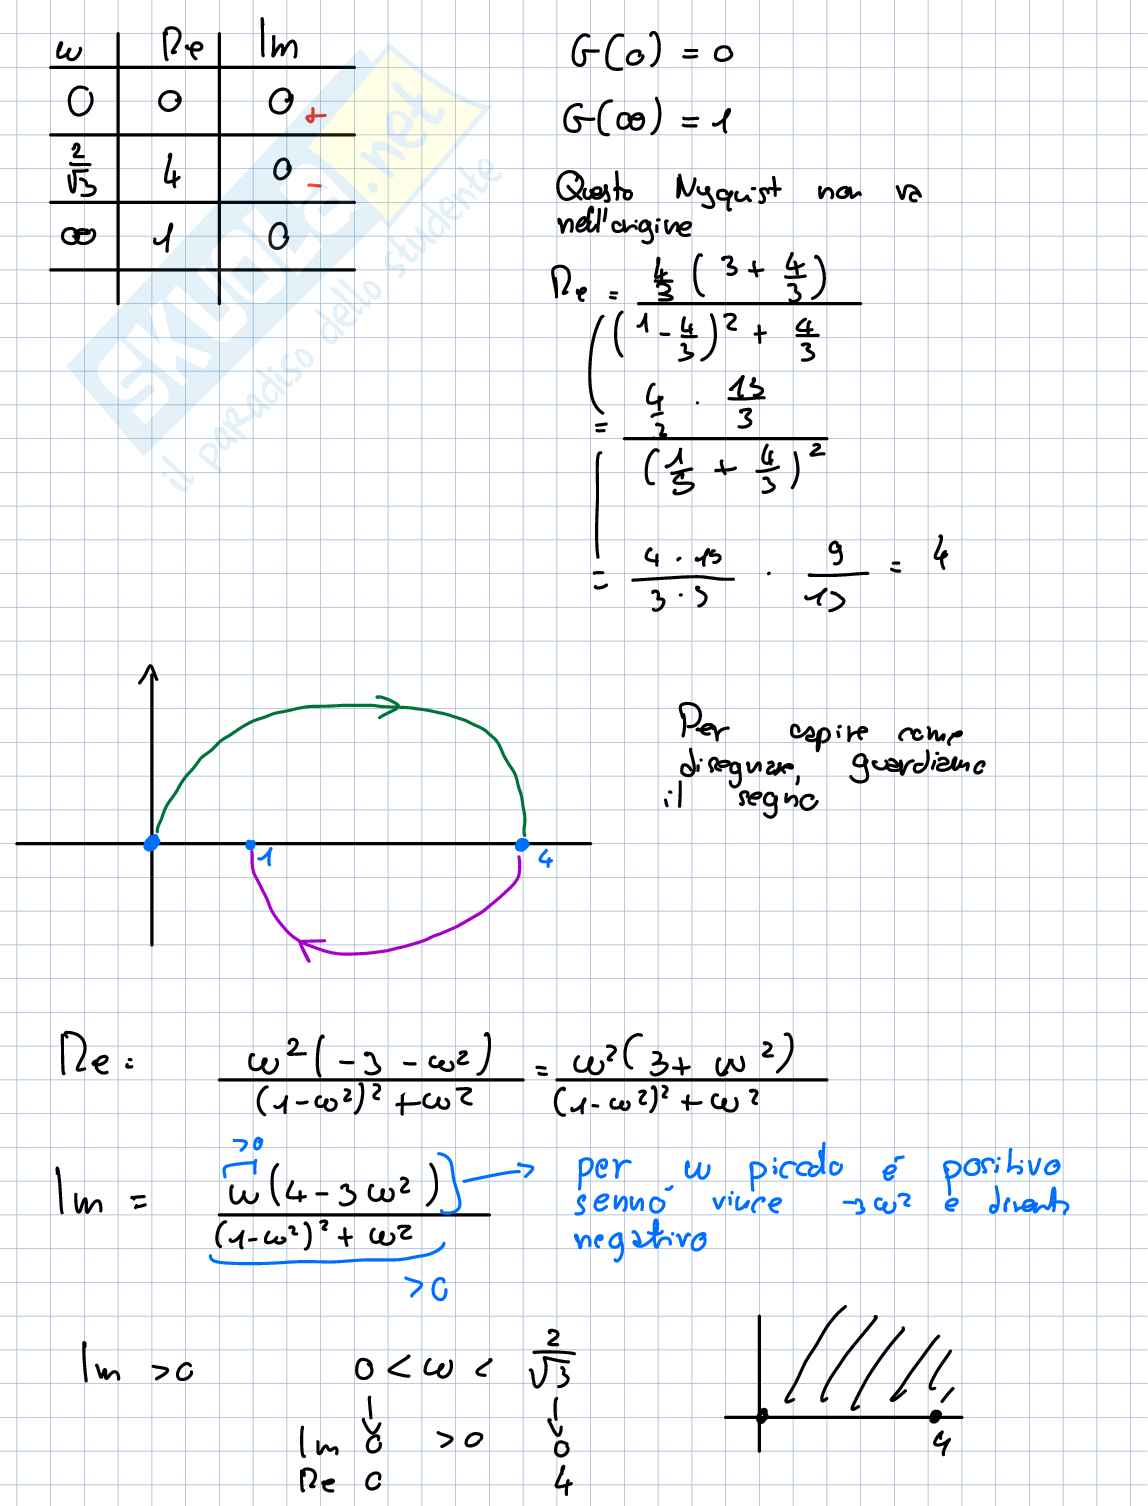 ω Re Im
0 0 0 +
2/√3 4 0 -
∞ 1 0
G(0) = 0
G(∞) = 1
Questo Nyquist non va
nell'origine
Re = 4/3 (3 + 4/3) / (1 - 4/3)² + 4/3
= 4/3 · 13/3 / (1/9 + 4/3)²
= 4·13 / 3·3 · 9/13 = 4
SKUOLA.net
il paradiso dello studente
1 4
Per capire come
disegnare, guardiamo
il segno
Re: ω²(-3 - ω²) / (1-ω²)² + ω² = ω²(3 + ω²) / (1-ω²)² + ω²
>0
Im = ω(4 - 3ω²) / (1-ω²)² + ω²
>0
per ω piccolo é positivo
sennó vince -3ω² e diventa
negativo
Im >0 0 < ω < 2/√3
Im 0 >0 0
Re 0 4
4